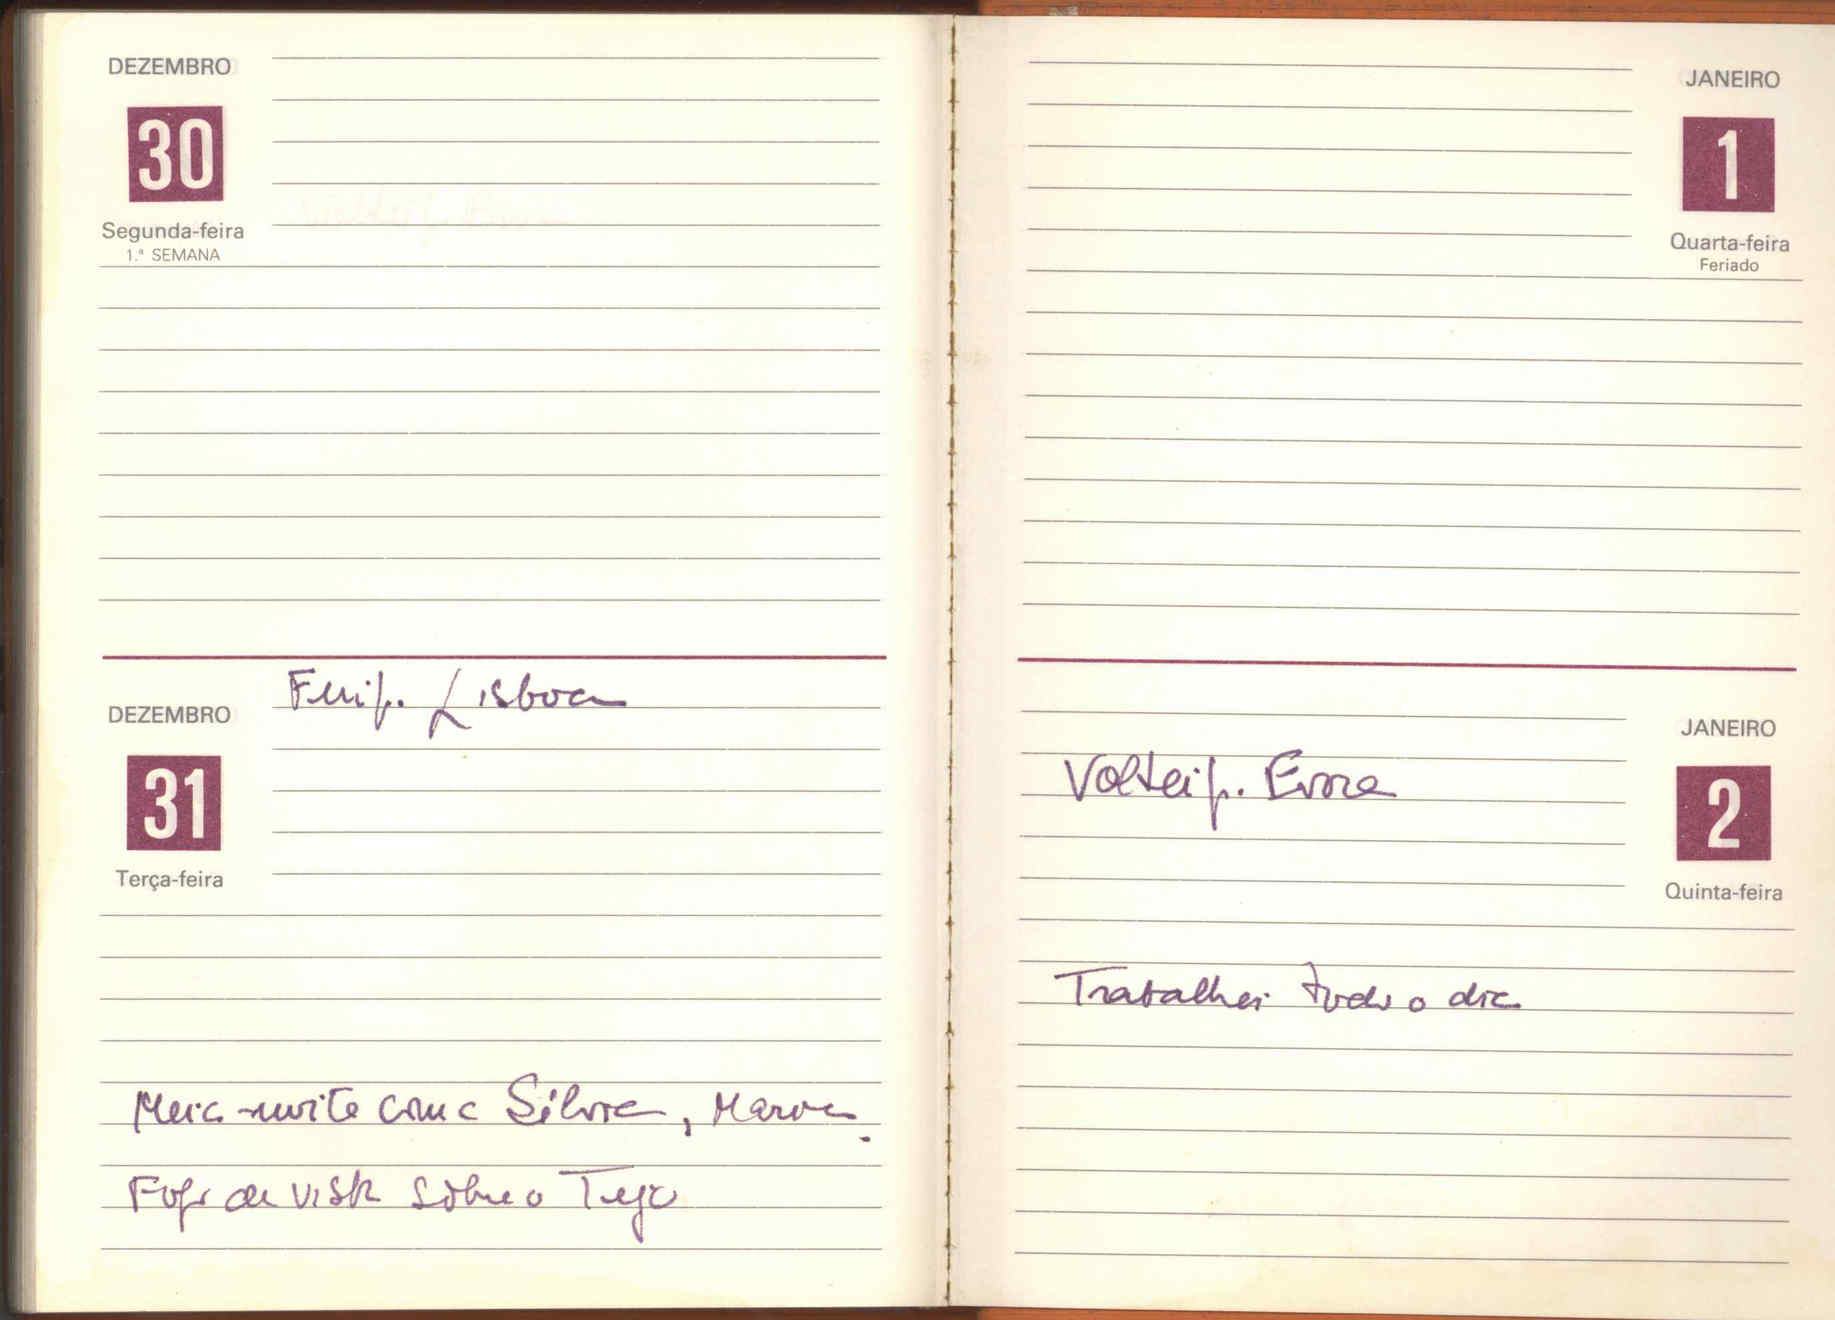 DEZEMBRO
30
Segunda-feira
1.ª SEMANA
DEZEMBRO
31
Terça-feira
Fui p. Lisboa
Meia-noite com a Silvia,
de vista sobre o Tejo
JANEIRO
1
Quarta-feira
Feriado
JANEIRO
2
Quinta-feira
Voltei p. Evora
Trabalhei todo o dia